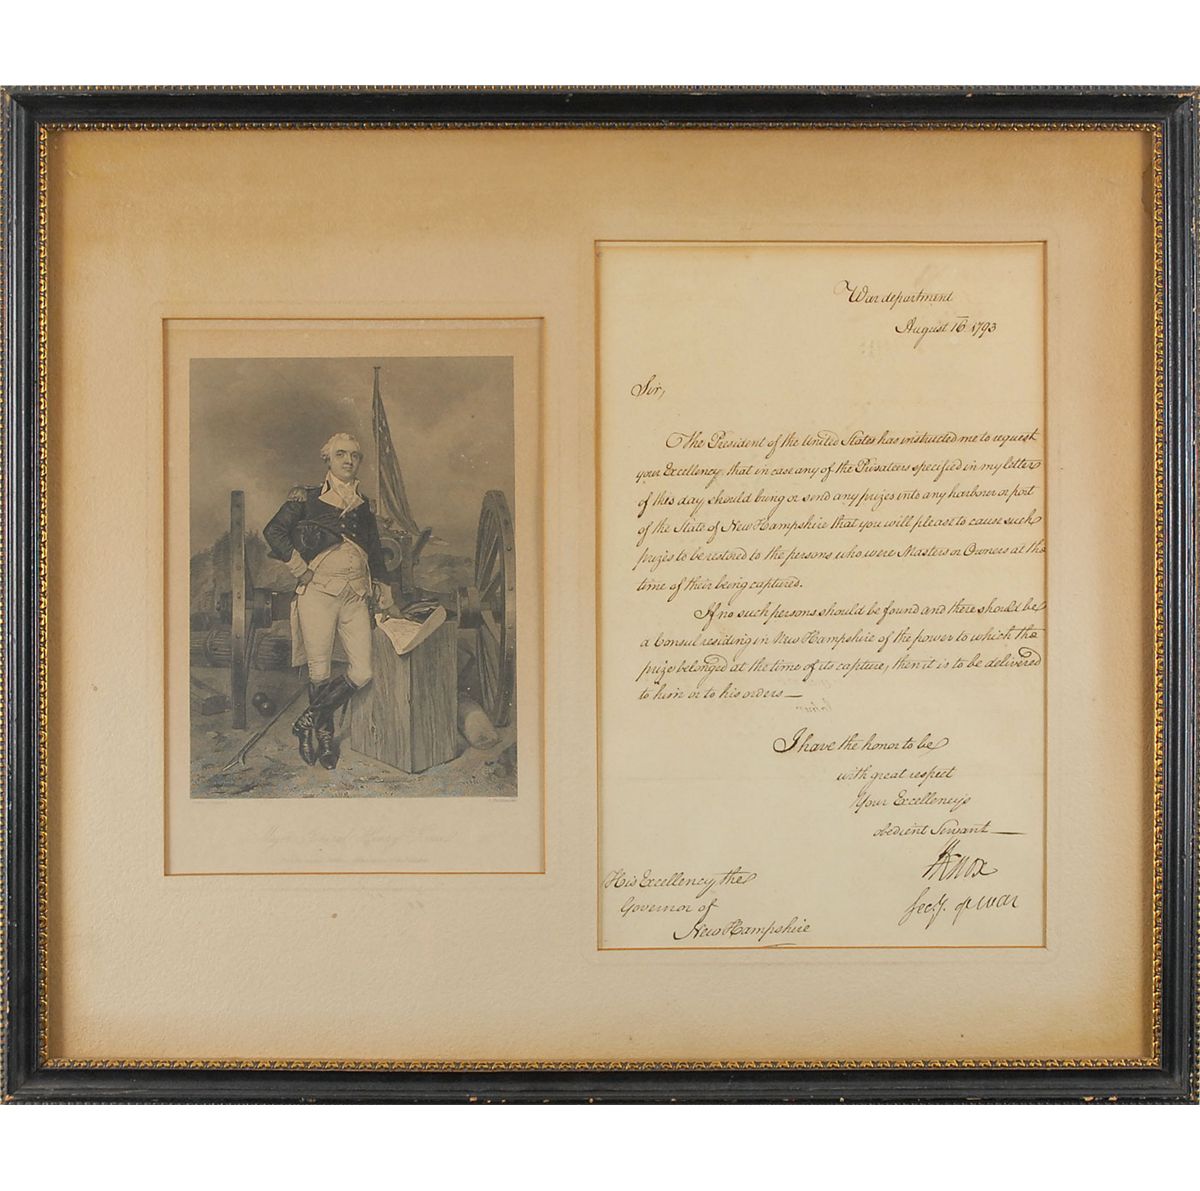 War department
August 16 1793
Sir,
The President of the United States has instructed me to request
your Excellency, that in case any of the Privateers specified in my letter
of this day should bring or send any prizes into any harbour or port
of the State of New Hampshire that you will please to cause such
prizes to be restored to the persons who were Masters or Owners at the
time of their being captured.
If no such persons should be found and there should be
a Consul residing in New Hampshire of the power to which the
prize belonged at the time of its capture, then it is to be delivered
to him or to his orders—
I have the honor to be
with great respect
Your Excellency's
obedient Servant
HKnox
Secy. of war
His Excellency, the
Governor of
New Hampshire